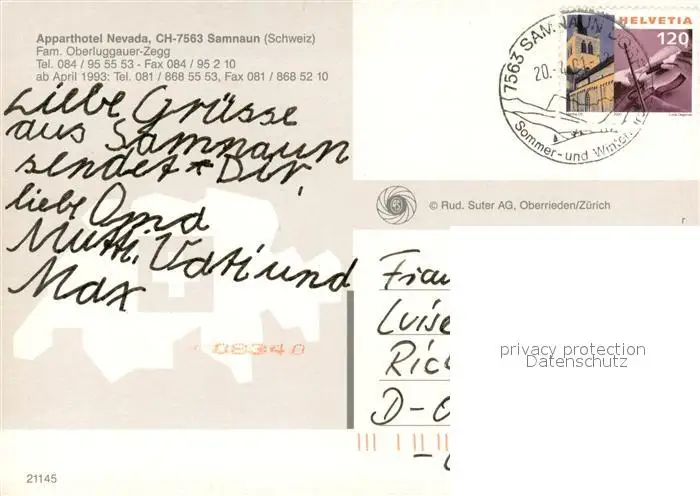 Apparthotel Nevada, CH-7563 Samnaun (Schweiz)
Fam. Oberluggauer-Zegg
Tel. 084 / 95 55 53 - Fax 084 / 95 2 10
ab April 1993: Tel. 081 / 868 55 53, Fax 081 / 868 52 10
Liebe Grüsse
aus Samnaun
sendet Dir,
liebe Oma
Mutti, Vati und
Max
HELVETIA
120
7563 SAMNAUN
20.
Sommer- und Winter
© Rud. Suter AG, Oberrieden/Zürich
r
Frau
Luise
Ric
D-
privacy protection
Datenschutz
08340
21145